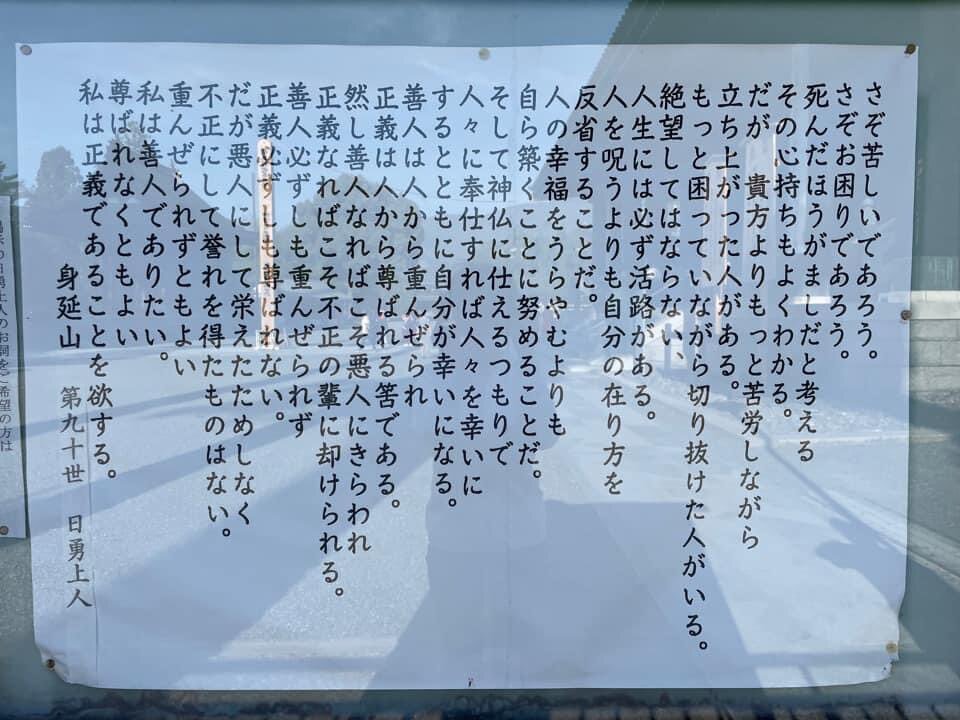 さぞ苦しいであろう。
さぞお困りであろう。
死んだほうがましだと考える
その心持ちもよくわかる。
だが、貴方よりもっと苦労しながら
立ち上がった人がある。
もっと困っていながら切り抜けた人がいる。
絶望してはならない、
人生には必ず活路がある。
人を呪うよりも自分の在り方を
反省することだ。
人の幸福をうらやむよりも
自ら築くことに努めることだ。
そして神仏に仕えるつもりで
人々に奉仕すれば人々を幸いに
するとともに自分が幸いになる。
善人は人から重んぜられ
正義は人から尊ばれる筈である。
然し善人なればこそ悪人にきらわれ
正義なればこそ不正の輩に却けられる。
善人必ずしも重んぜられず
正義必ずしも尊ばれない。
だが悪人にして栄えたためしなく
不正にして誉れを得たものはない。
重んぜられずともよい
私は善人でありたい。
尊ばれなくともよい
私は正義であることを欲する。
身延山 第九十世 日勇上人
日勇上人のお詞をご希望の方は